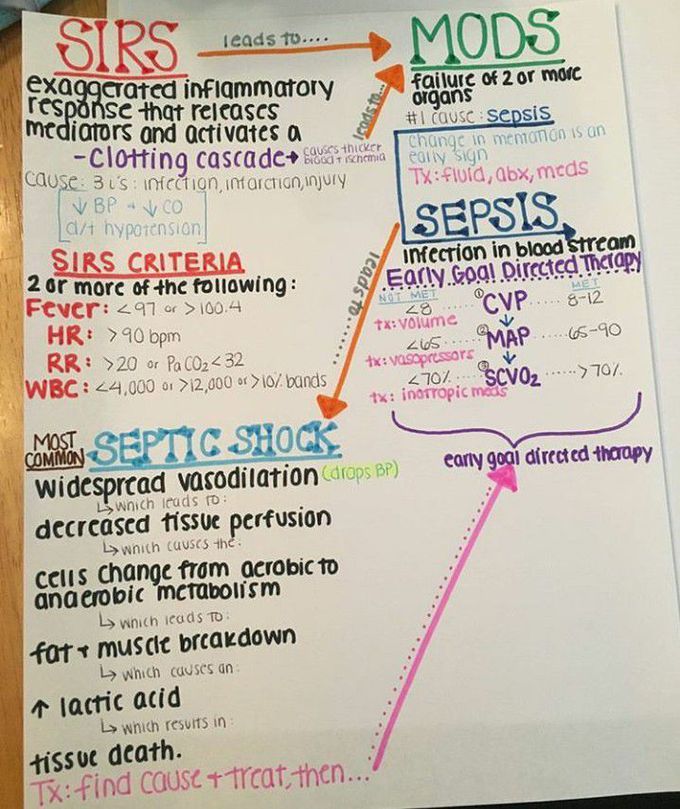 SIRS
leads to....
exaggerated inflammatory
response that releases
mediators and activates a
-Clotting cascade→ causes thicker
blood + ischemia
cause: 3 i's: infection, infarction, injury
↓ BP → ↓ CO
d/t hypotension
SIRS CRITERIA
2 or more of the following:
Fever: <97 or >100.4
HR: >90 bpm
RR: >20 or PaCO2<32
WBC: <4,000 or >12,000 or >10% bands
leads to...
MODS
failure of 2 or more
organs
#1 cause: sepsis
change in mentation is an
early sign
Tx: fluid, abx, meds
SEPSIS
infection in blood stream
Early Goal Directed Therapy
NOT MET
MET
<8 ...... ① CVP ..... 8-12
tx: volume
↓
<65 ...... ② MAP ..... 65-90
tx: vasopressors
↓
<70% ...... ③ SCVO2 ..... >70%
tx: inotropic meds
early goal directed therapy
leads to ......
MOST
COMMON
SEPTIC SHOCK
widespread vasodilation (drops BP)
↳ which leads to:
decreased tissue perfusion
↳ which causes the:
cells change from aerobic to
anaerobic metabolism
↳ which leads to:
fat + muscle breakdown
↳ which causes an:
↑ lactic acid
↳ which results in:
tissue death.
Tx: find cause + treat, then...